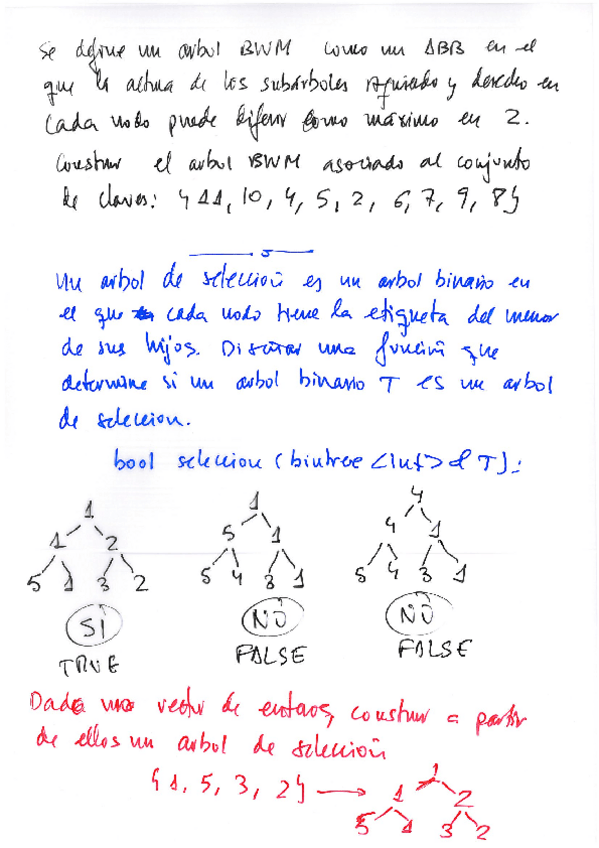 Se define un arbol BWM como un ABB en el
que la altura de los subárboles izquierdo y derecho en
cada nodo puede diferir como máximo en 2.
Construir el arbol BWM asociado al conjunto
de claves: {11, 10, 4, 5, 2, 6, 7, 9, 8}
Un arbol de selección es un arbol binario en
el que cada nodo tiene la etiqueta del menor
de sus hijos. Diseñar una función que
determine si un arbol binario T es un arbol
de seleccion.
bool seleccion (bintree <int> & T);
1
1 2
5 1 3 2
SI
TRUE
1
5 1
5 4 3 1
NO
FALSE
4
4 1
5 4 3 1
NO
FALSE
Dado un vector de enteros, construir a partir
de ellos un arbol de selección
{1, 5, 3, 2}
1
1 2
5 1 3 2